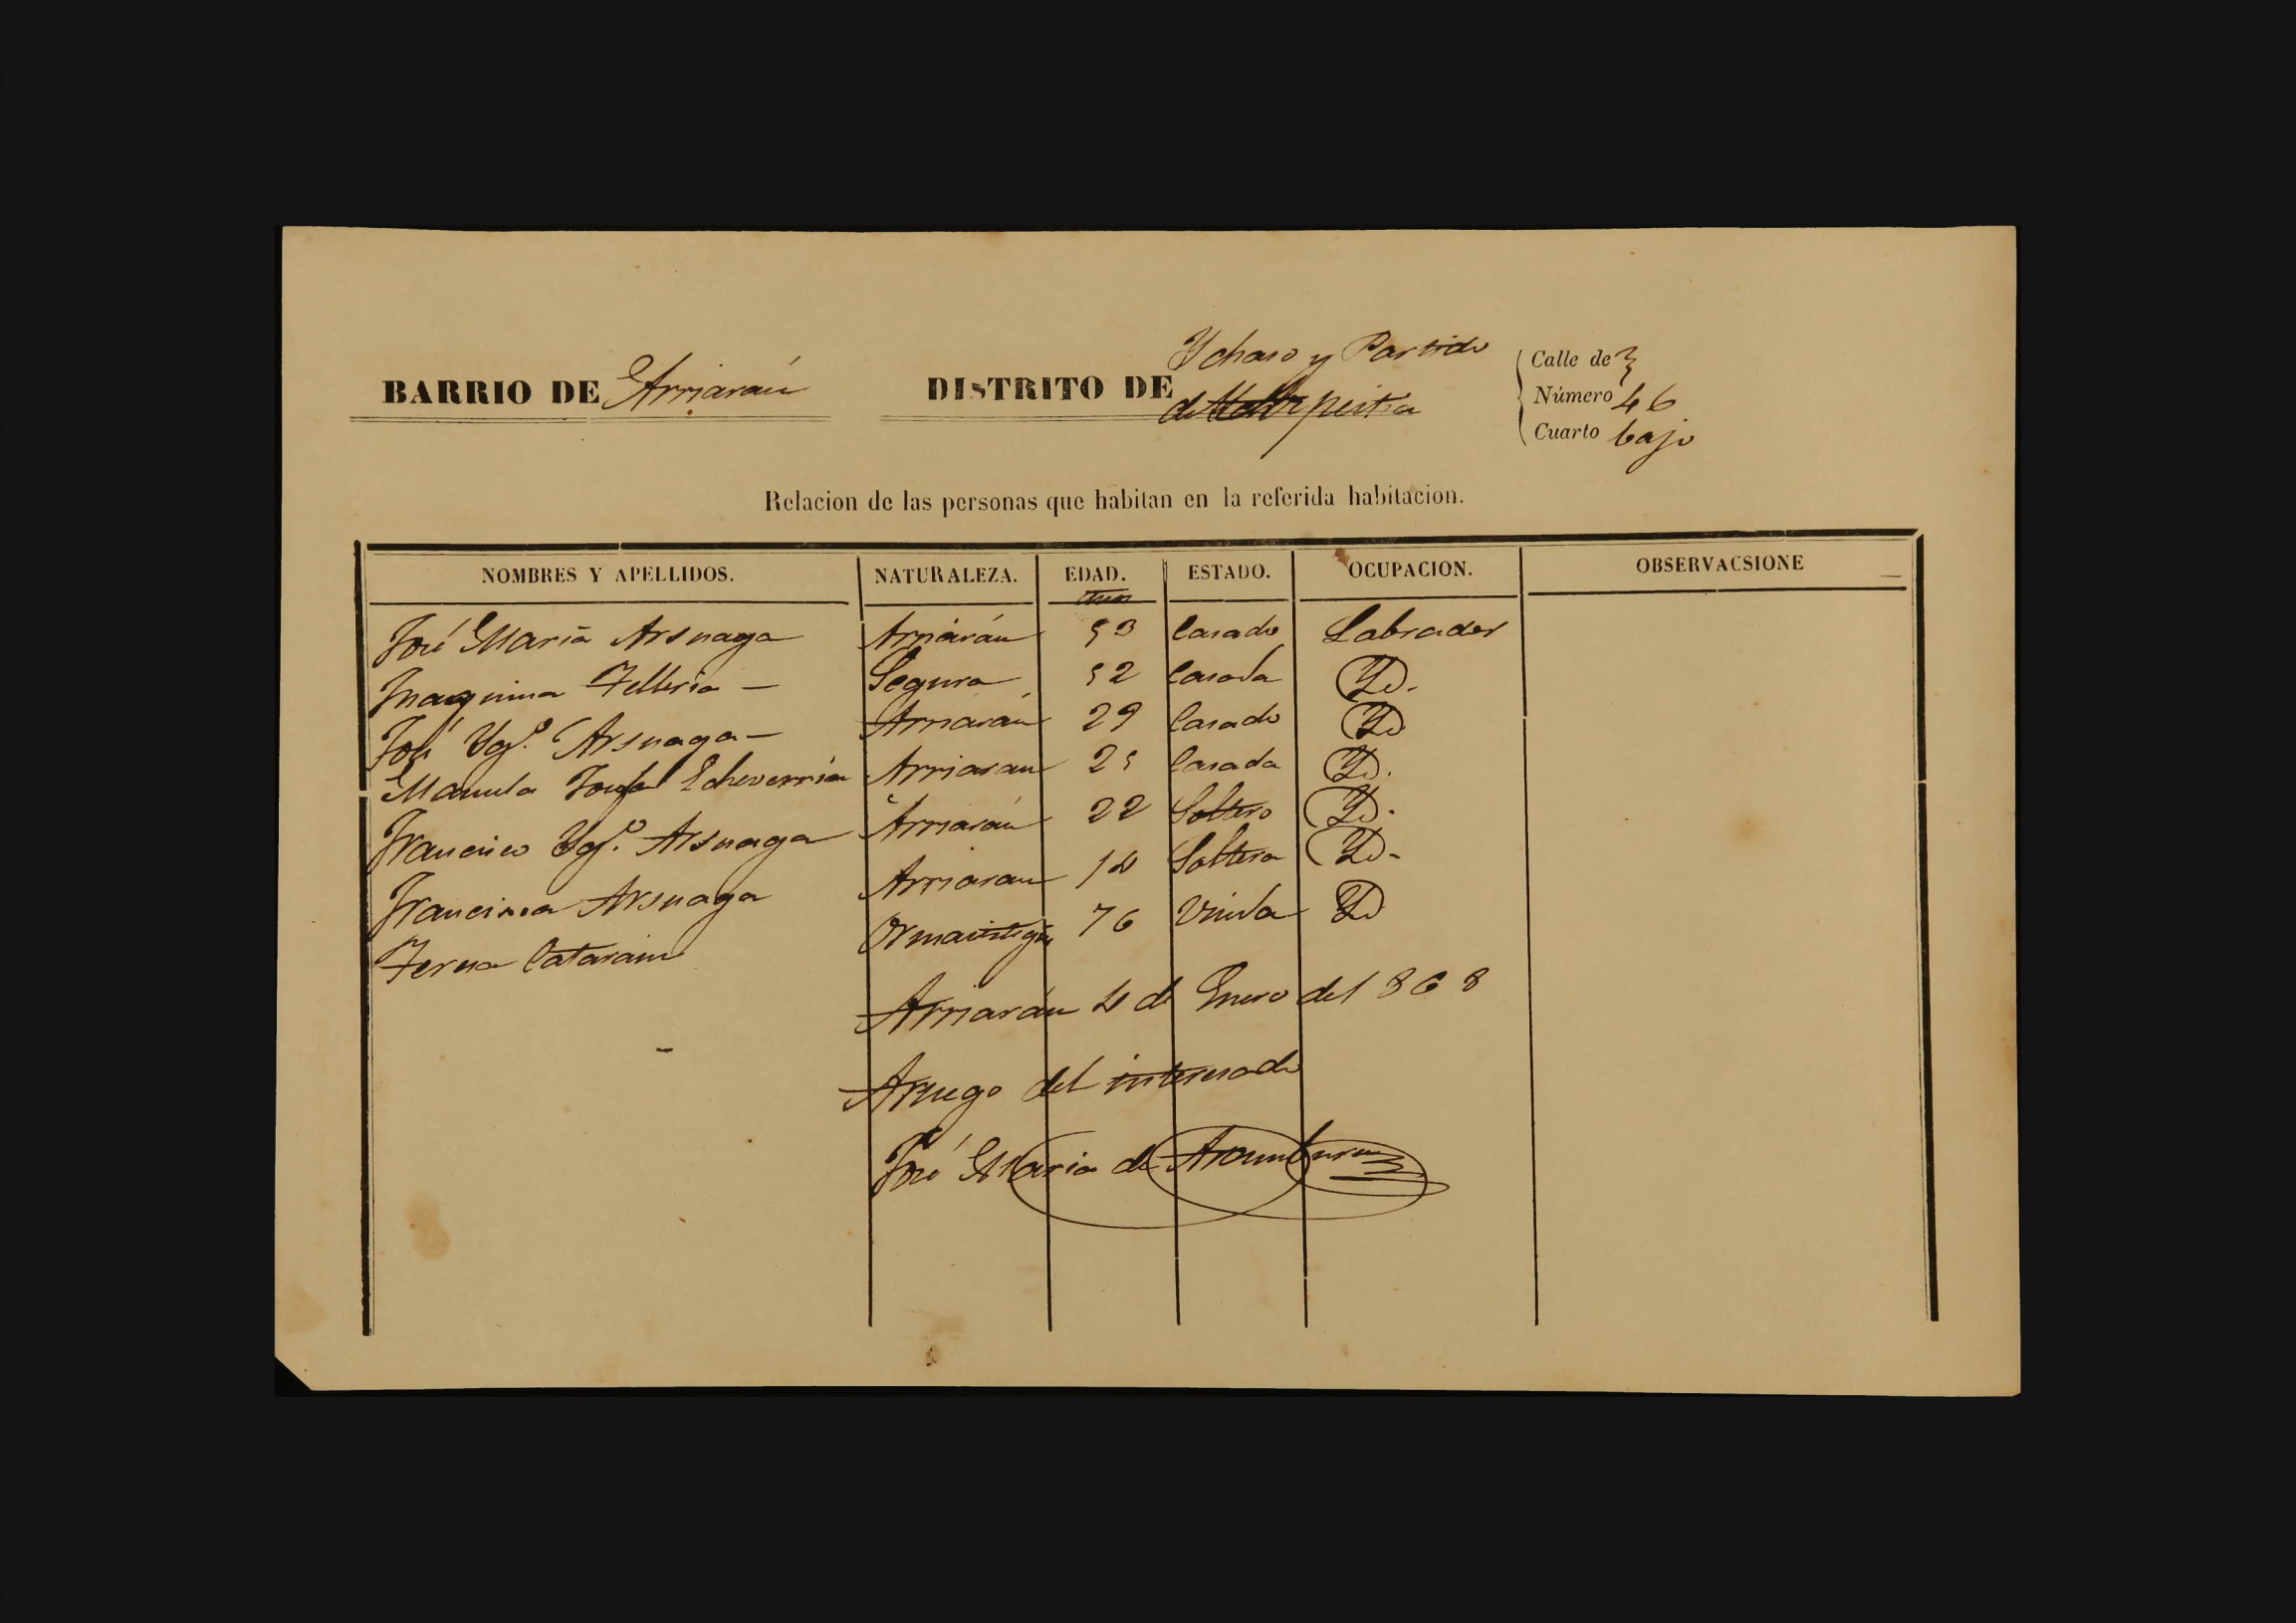 Ychaso y Partido
BARRIO DE Arriarán DISTRITO DE de Azpeitia
Calle de
Número 46
Cuarto bajo
Relacion de las personas que habitan en la referida habitacion.
NOMBRES Y APELLIDOS. NATURALEZA. EDAD. ESTADO. OCUPACION. OBSERVACSIONE
años
José Maria Arsuaga Arriarán 53 Casado Labrador
Juaquina Telleria — Segura 52 Casada Yd.
José Ygº. Arsuaga — Arriarán 29 Casado Yd
Manuela Josefa Echeverria Arriaran 25 Casada Yd.
Francisco Ygº. Arsuaga Arriarán 22 Soltero Yd.
Francisca Arsuaga Arriaran 14 Soltera Yd-
Teresa Catarain Ormaistegui 76 Viuda Yd
Arriarán 4 de Enero del 868
Arruego del interesado
José Maria de Aramburu